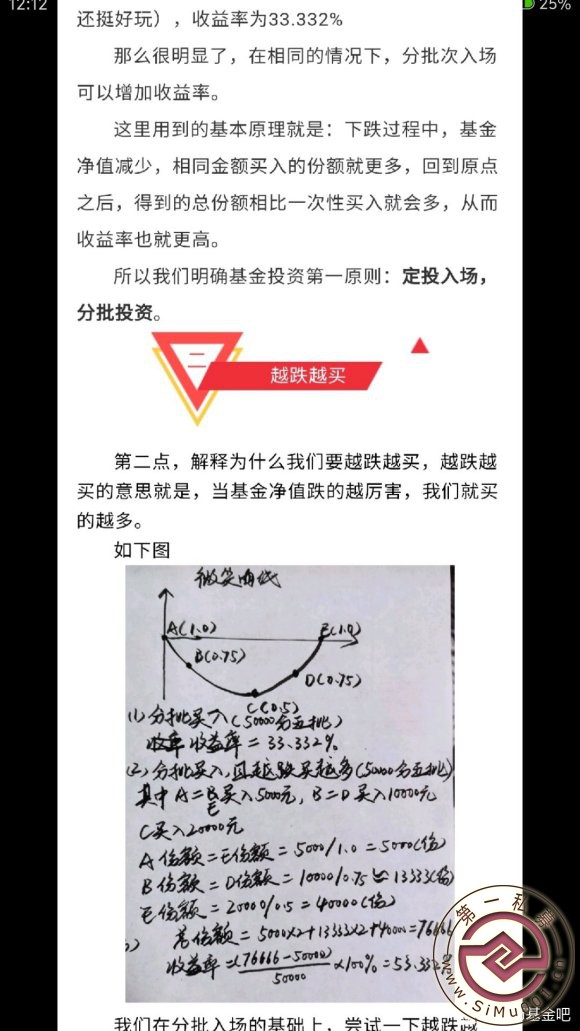 12:12
25%
还挺好玩），收益率为33.332%
那么很明显了，在相同的情况下，分批次入场
可以增加收益率。
这里用到的基本原理就是：下跌过程中，基金
净值减少，相同金额买入的份额就更多，回到原点
之后，得到的总份额相比一次性买入就会多，从而
收益率也就更高。
所以我们明确基金投资第一原则：定投入场，
分批投资。
二
越跌越买
第二点，解释为什么我们要越跌越买，越跌越
买的意思就是，当基金净值跌的越厉害，我们就买
的越多。
如下图
微笑曲线
A(1.0)
E(1.0)
B(0.75)
D(0.75)
C(0.5)
(1)分批买入(50000分五批)
收益率=33.332%
(2)分批买入,且越跌买越多(50000分五批)
其中A=E买入5000元,B=D买入10000元
C买入20000元
A份额=E份额=5000/1.0=5000(份)
B份额=D份额=10000/0.75≈13333(份)
E份额=20000/0.5=40000(份)
总份额=5000×2+13333×2+40000=76666
收益率=(76666-50000)/50000×100%=53.332%
第一私募
www.SiMu
基金吧
我们在分批入场的基础上，尝试一下越跌越